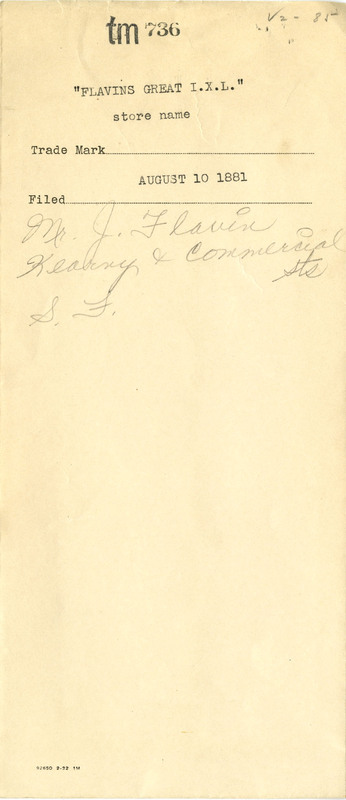 V2 - 85
tm 736
"FLAVINS GREAT I.X.L."
store name
Trade Mark
AUGUST 10 1881
Filed
Mr. J. Flavin
Kearny & Commercial
sts
S. F.
92650 2-32 1M